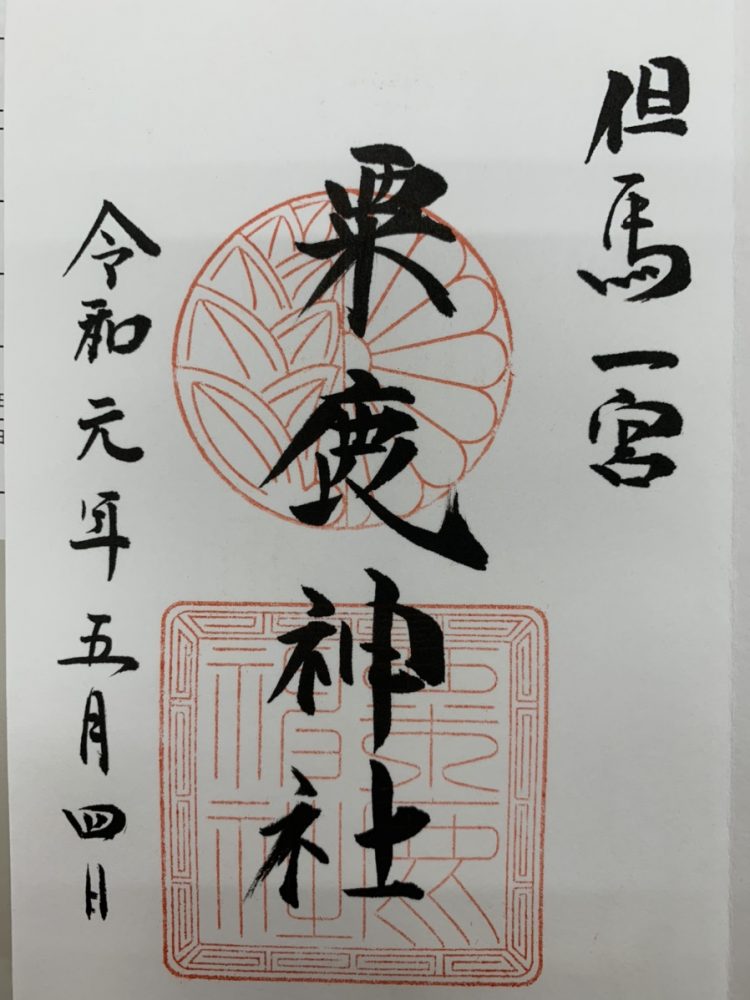 但馬一宮
粟鹿神社
令和元年五月四日
粟鹿神社